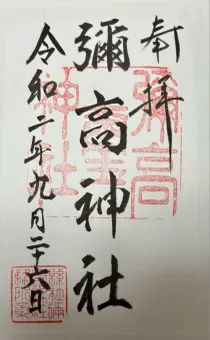 奉拝
彌高神社
令和二年九月二十六日
彌高
神社